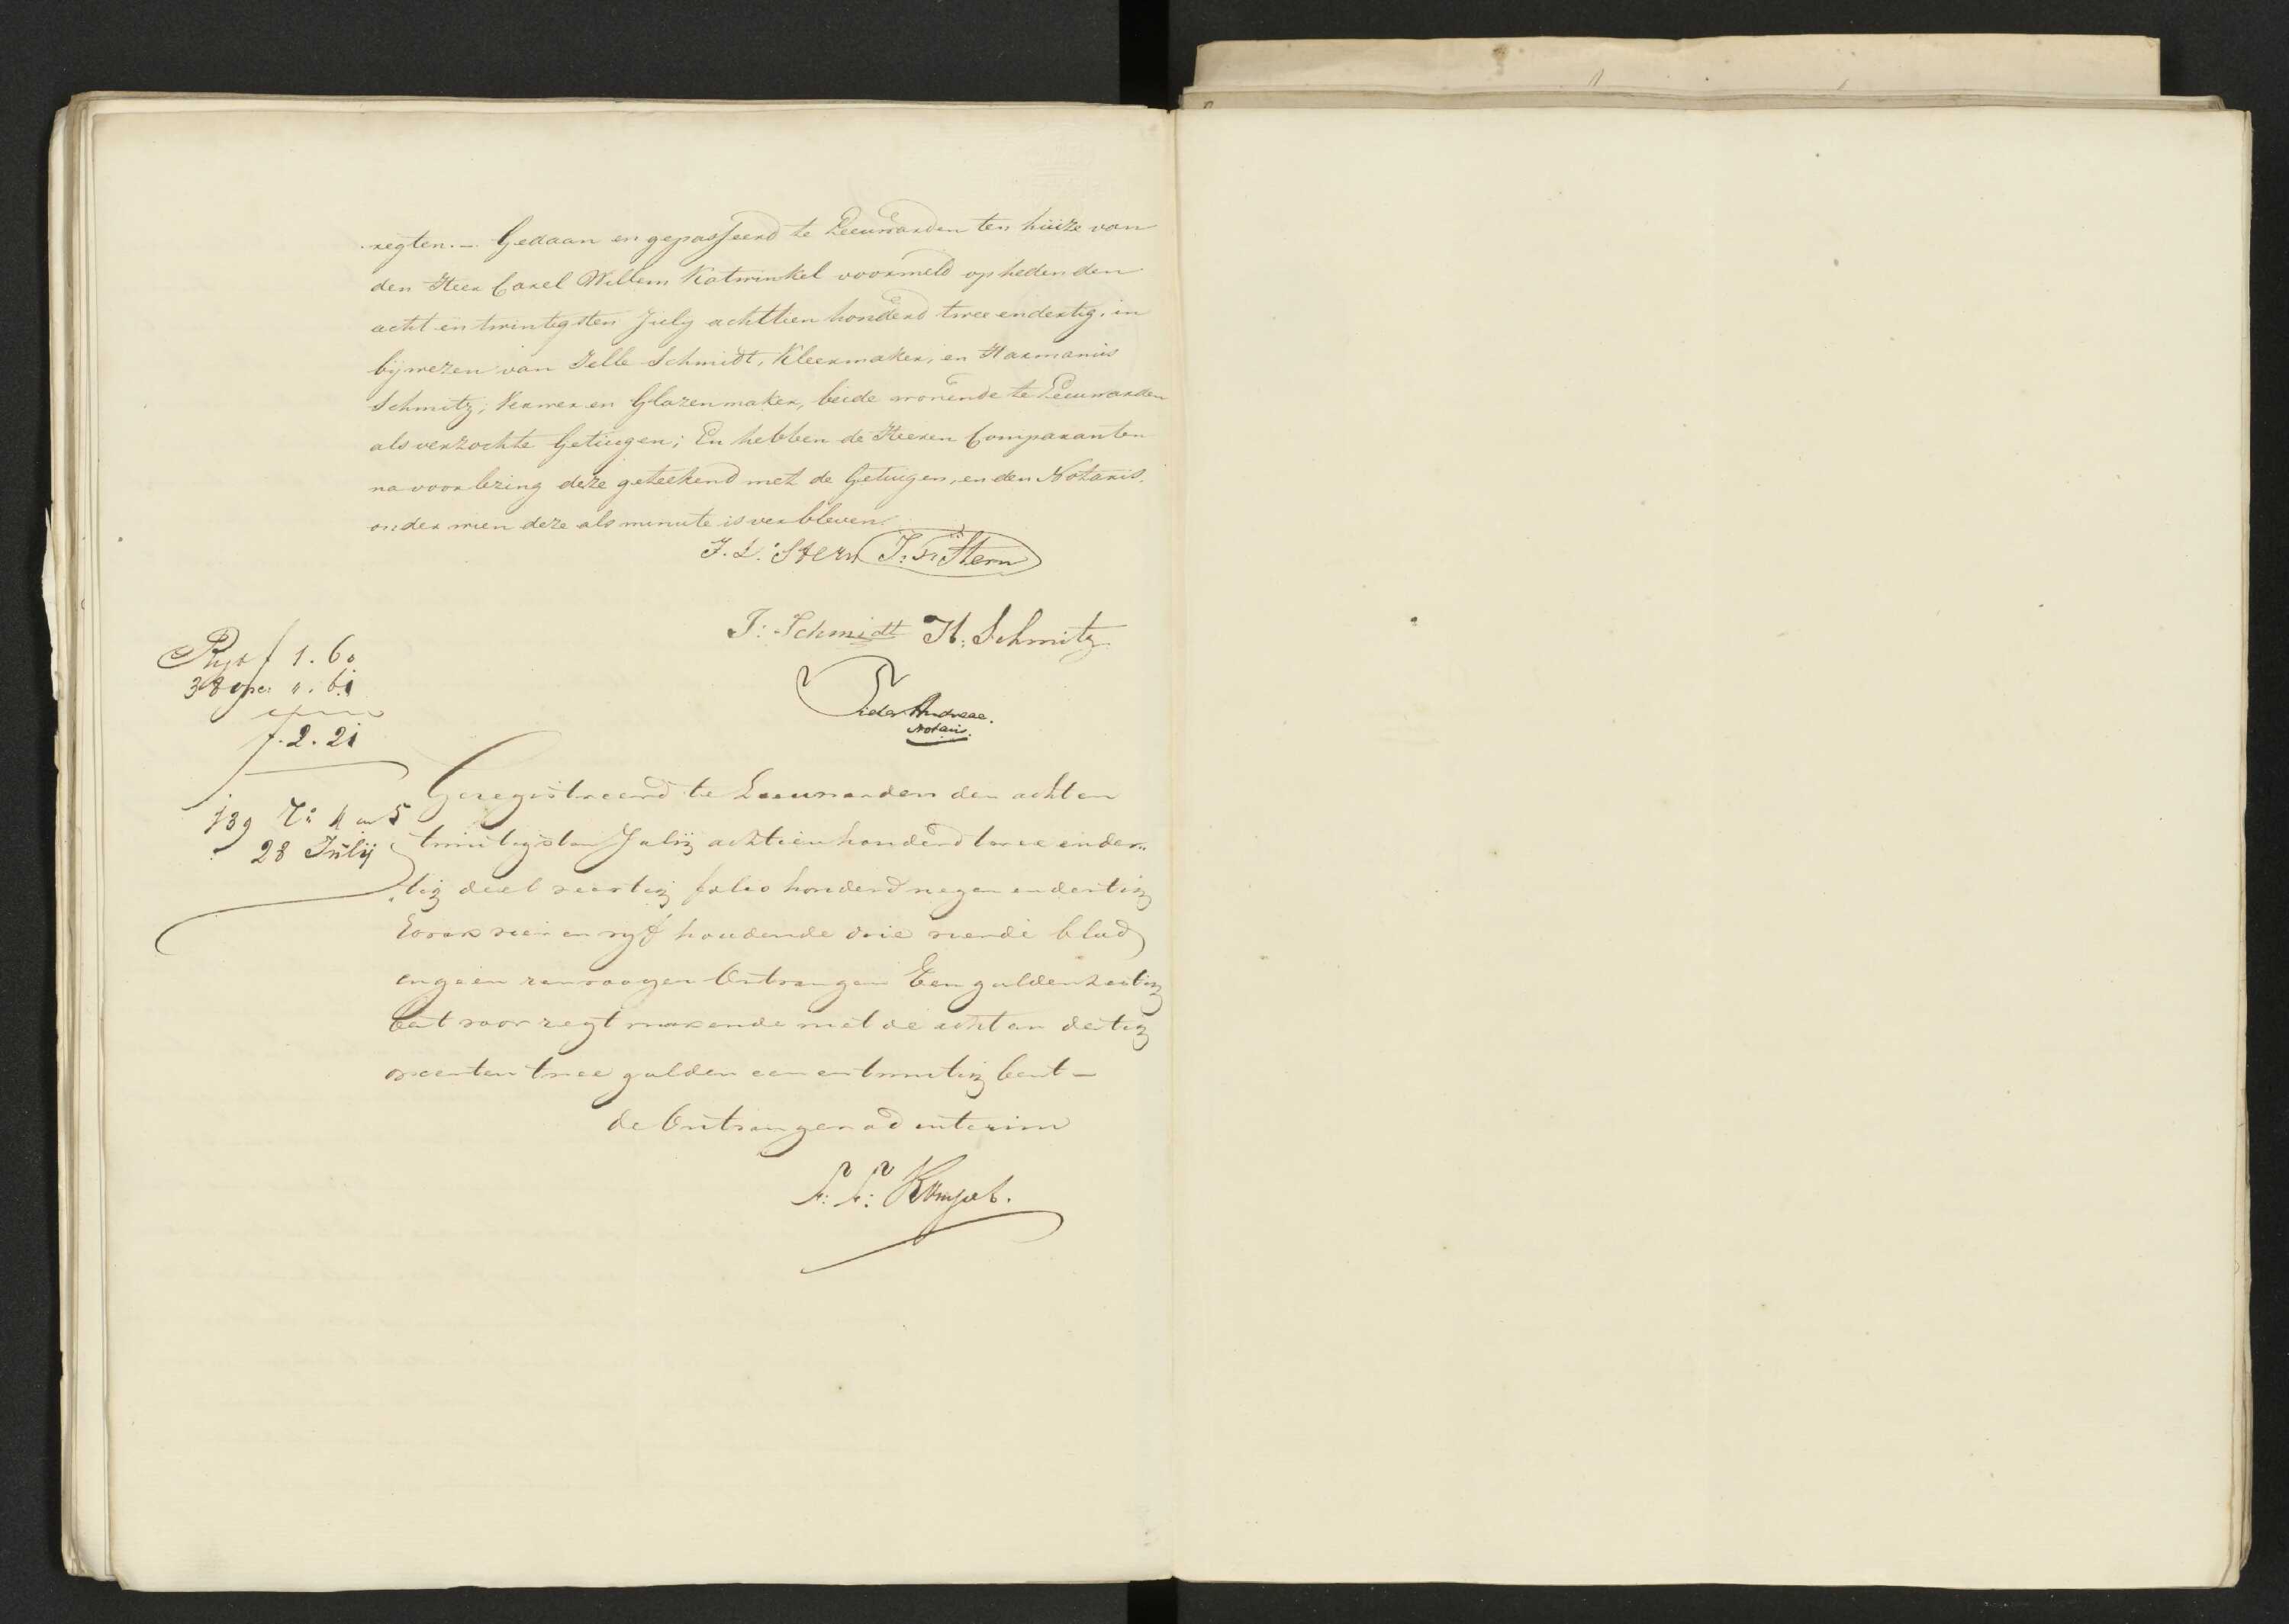 regten. – Gedaan en gepasseerd te Leeuwarden ten huize van
den Heer Carel Willem Katwinkel voormeld op heden den
acht en twintigsten July achttien honderd twee en dertig, in
bijwezen van Jelle Schmidt, Kleermaker, en Harmanus
Schmitz, Verwer en Glazenmaker, beide wonende te Leeuwarden
als verzochte Getuigen; En hebben de Heeren Comparanten
na voorlezing deze geteekend met de Getuigen, en den Notaris.
onder wien deze als minute is verbleven.
J. L. Stern J: S: Stern
J: Schmidt H: Schmitz
Eider Andreae.
Notaris.
Regt f 1. 60
38 opc: ". 61
f. 2. 21
139 Vo 4 en 5
28 Julij
Geregistreerd te Leeuwarden den acht en
twintigsten Julij achttienhonderd twee en der„
tig deel veertig folio honderd negen en dertig
verso vier en vyf houdende drie
blad
en geen renvooyen Ontvangen Een gulden zestig
Cent voor regt makende met de acht en dertig
opcenten twee gulden een en twintig Cent –
de Ontvanger ad interim